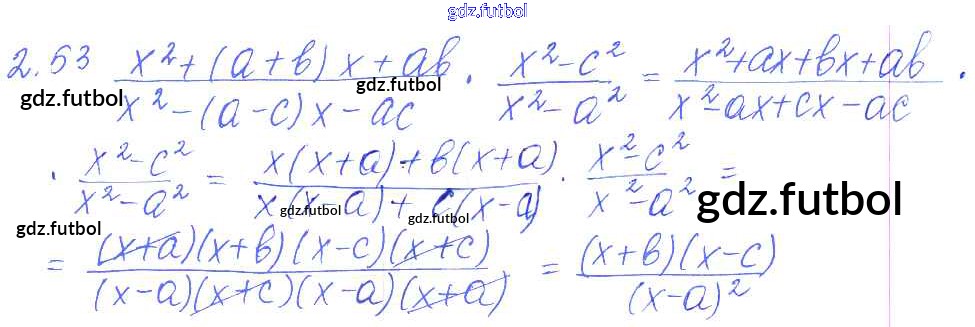 gdz.futbol
2.53 (x² + (a + b)x + ab)/(x² - (a - c)x - ac) · (x² - c²)/(x² - a²) = (x² + ax + bx + ab)/(x² - ax + cx - ac) ·
gdz.futbol
gdz.futbol
· (x² - c²)/(x² - a²) = (x(x + a) + b(x + a))/(x(x - a) + c(x - a)) · (x² - c²)/(x² - a²) =
gdz.futbol
gdz.futbol
gdz.futbol
gdz.futbol
= ((x + a)(x + b)(x - c)(x + c))/((x - a)(x + c)(x - a)(x + a)) = ((x + b)(x - c))/((x - a)²)